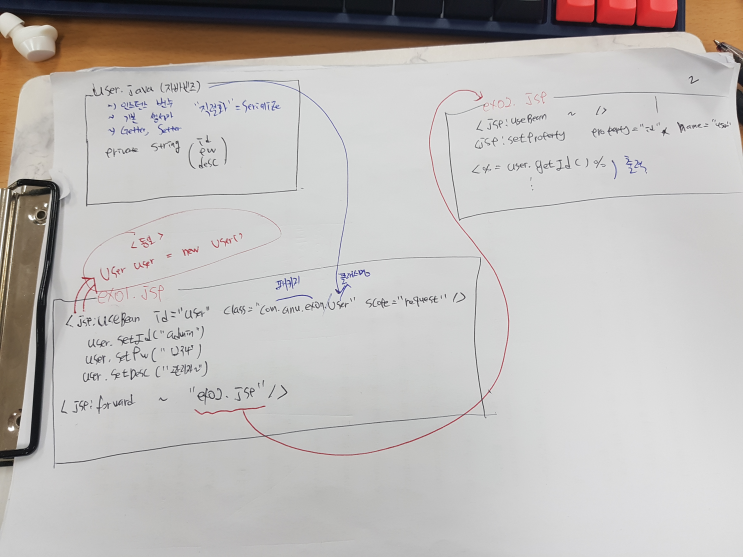 User.java (자바빈즈)
-> 인스턴스 변수
-> 기본 생성자
-> Getter, Setter
"직렬화" = Serialize
private String ( id
pw
desc )
<동일>
User user = new User();
ex01.jsp
패키지 클래스명
<jsp:useBean id="user" class="com.anu.ex01.User" scope="request" />
user.setId("admin")
user.setPw("1234")
user.setDesc("관리자")
<jsp:forward ~ "ex02.jsp" />
2
ex02.jsp
<jsp:useBean ~ />
<jsp:setProperty property="id" * name="user"
<%= user.getId() %> 출력
⋮